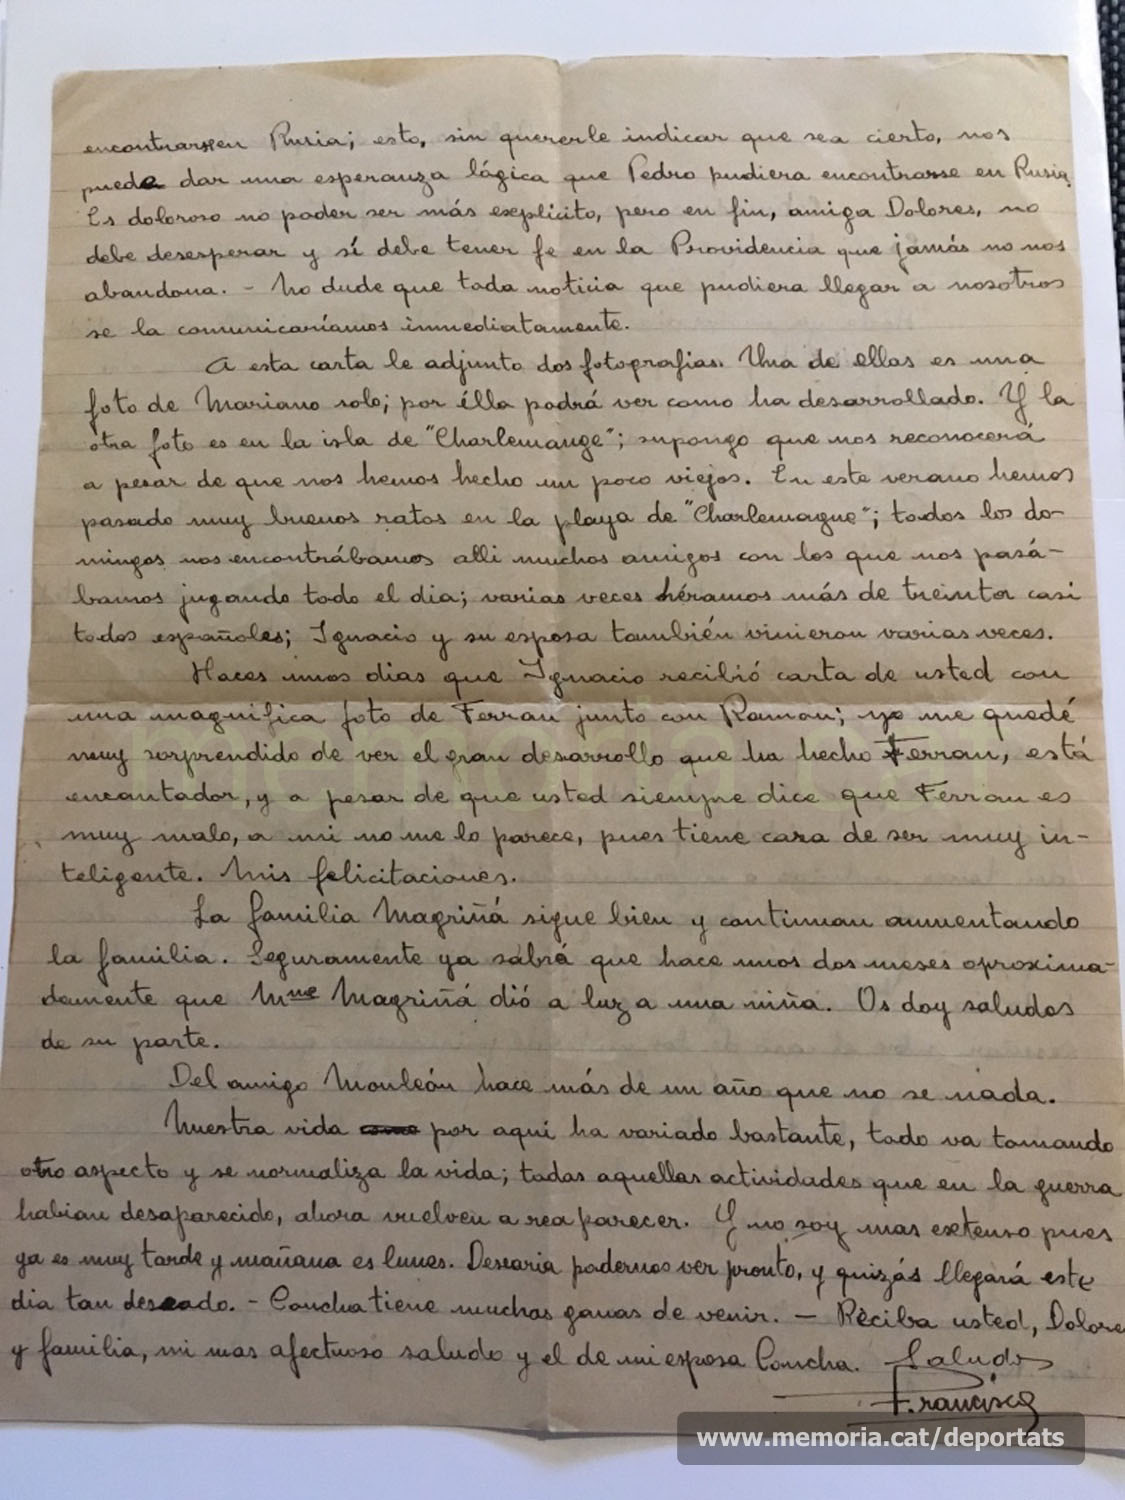 encontrarsen Rusia; esto, sin quererle indicar que sea cierto, nos
puede dar una esperanza lágica que Pedro pudiera encontrarse en Rusia.
Es doloroso no poder ser más esplicito, pero en fin, amiga Dolores, no
debe desesperar y sí debe tener fe en la Providencia que jamás no nos
abandona. - No dude que toda noticia que pudiera llegar a nosotros
se la comunicaríamos inmediatamente.
A esta carta le adjunto dos fotografias. Una de ellas es una
foto de Mariano solo; por élla podrá ver como ha desarrollado. Y la
otra foto es en la isla de "Charlemange"; supongo que nos reconocerá
a pesar de que nos hemos hecho un poco viejos. En este verano hemos
pasado muy buenos ratos en la playa de "Charlemague"; todos los do-
mingos nos encontrábamos alli muchos amigos con los que nos pasá-
bamos jugando todo el dia; varias veces héramos más de treinta casi
todos españoles; Ignacio y su esposa también vinieron varias veces.
Haces unos dias que Ignacio recibió carta de usted con
una magnifica foto de Ferran junto con Ramon; yo me quedé
muy sorprendido de ver el gran desarrollo que ha hecho Ferran, está
encantador, y a pesar de que usted siempre dice que Ferran es
muy malo, a mi no me lo parece, pues tiene cara de ser muy in-
teligente. Mis felicitaciones.
La familia Magriñá sigue bien y continuan aumentando
la familia. Seguramente ya sabrá que hace unos dos meses aproxima-
damente que Mme Magriñá dió a luz a una niña. Os doy saludos
de su parte.
Del amigo Monleón hace más de un año que no se nada.
Nuestra vida como por aqui ha variado bastante, todo va tomando
otro aspecto y se normaliza la vida; todas aquellas actividades que en la guerra
habian desaparecido, ahora vuelven a reaparecer. Y no soy mas extenso pues
ya es muy tarde y mañana es lunes. Desearia podernos ver pronto, y quizás llegará este
dia tan deseado. - Concha tiene muchas ganas de venir. - Reciba usted, Dolores
y familia, mi mas afectuoso saludo y el de mi esposa Concha. Saludos
Francisco
www.memoria.cat/deportats